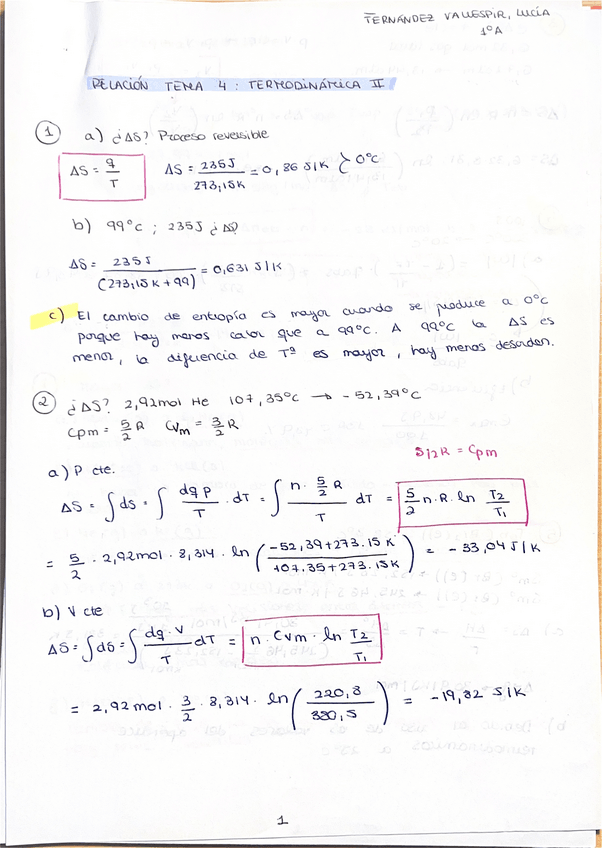 FERNÁNDEZ VALLESPIR, LUCÍA
1ºA
RELACIÓN TEMA 4: TERMODINÁMICA II
1 a) ¿ΔS? Proceso reversible
ΔS = q/T ΔS = 235J/273,15K = 0,86 J/K } 0ºC
b) 99ºC ; 235J ¿ΔS?
ΔS = 235J/(273,15K+99) = 0,631 J/K
c) El cambio de entropía es mayor cuando se produce a 0ºC
porque hay menos calor que a 99ºC. A 99ºC la ΔS es
menor, la diferencia de Tª es mayor, hay menos desorden.
2 ¿ΔS? 2,92mol He 107,35ºC → -52,39ºC
Cpm = 5/2 R Cvm = 3/2 R
5/2R = Cpm
a) P cte:
ΔS = ∫dS = ∫ dqP/T · dT = ∫ n · 5/2 R/T dT = 5/2 n·R·ln T2/T1
= 5/2 · 2,92mol · 8,314 · ln(-52,39+273.15K/107.35+273.15K) = -33,04 J/K
b) V cte
ΔS = ∫dS = ∫ dq·V/T dT = n · Cvm · ln T2/T1
= 2,92mol · 3/2 · 8,314 · ln(220,8/380,5) = -19,82 J/K
1